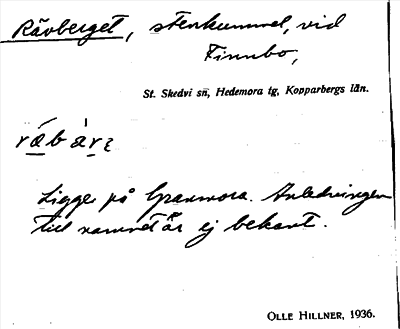 Rävberget, stenkummel, vid
Finnbo,
St. Skedvi sn, Hedemora tg, Kopparbergs län.
Ligger på Granmora. Anledningen
till namnet är ej bekant.
OLLE HILLNER, 1936.